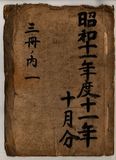 昭和十一年度十一年
十月分
三冊ノ内一